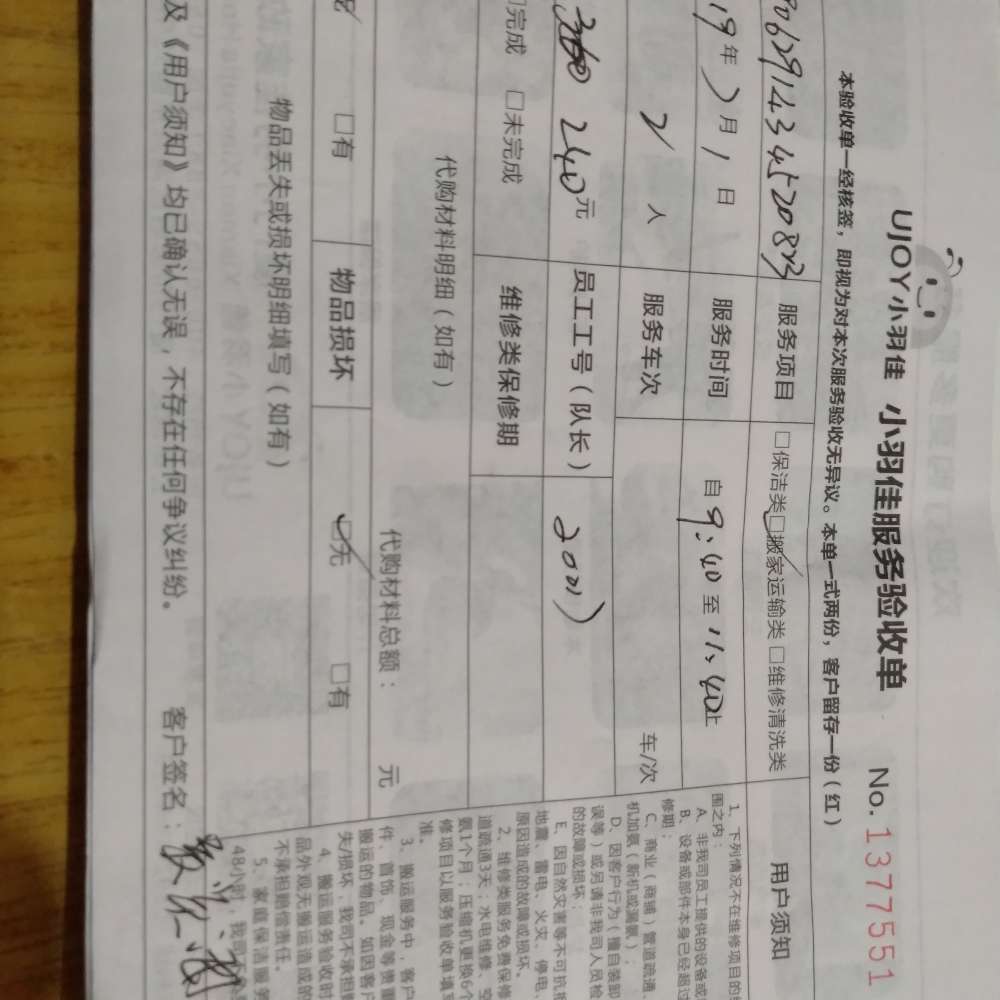 UJOY小羽佳 小羽佳服务验收单 No.1377551
本验收单一经核签，即视为对本次服务验收无异议。本单一式两份，客户留存一份（红）
服务项目 □保洁类 □搬家运输类 □维修清洗类 用户须知
19年 月1日 服务时间 自9:40至11:40止
2人 服务车次 车/次
240元 员工工号（队长）
完成 □未完成 维修类保修期
代购材料明细（如有） 代购材料总额： 元
□有 物品损坏 □无 □有
物品丢失或损坏明细填写（如有）
及《用户须知》均已确认无误，不存在任何争议纠纷。 客户签名：
1、下列情况不在维修项目的
围之内：
A、非我司员工提供的设备或
B、设备或部件本身已经超过
修期；
C、商业（商铺）管道疏通
机加氨（新机或漏氨）；
D、因客户行为（擅自装卸
误等）或另请非我司人员检
的故障或损坏；
E、因自然灾害等不可抗
地震、雷电、火灾、停电、
原因造成的故障或损坏。
2、维修类服务免费保修
道疏通3天；水电维修、
氨1个月；压缩机更换6个
修项目以服务验收单填写
准。
3、搬运服务中，客户
件、首饰、现金等贵重
搬运的物品。如因客户
失/损坏，我司不承担
4、搬运服务验收时
品外观无搬运造成的
不承担赔偿责任。
5、家庭保洁服务
48小时，我司